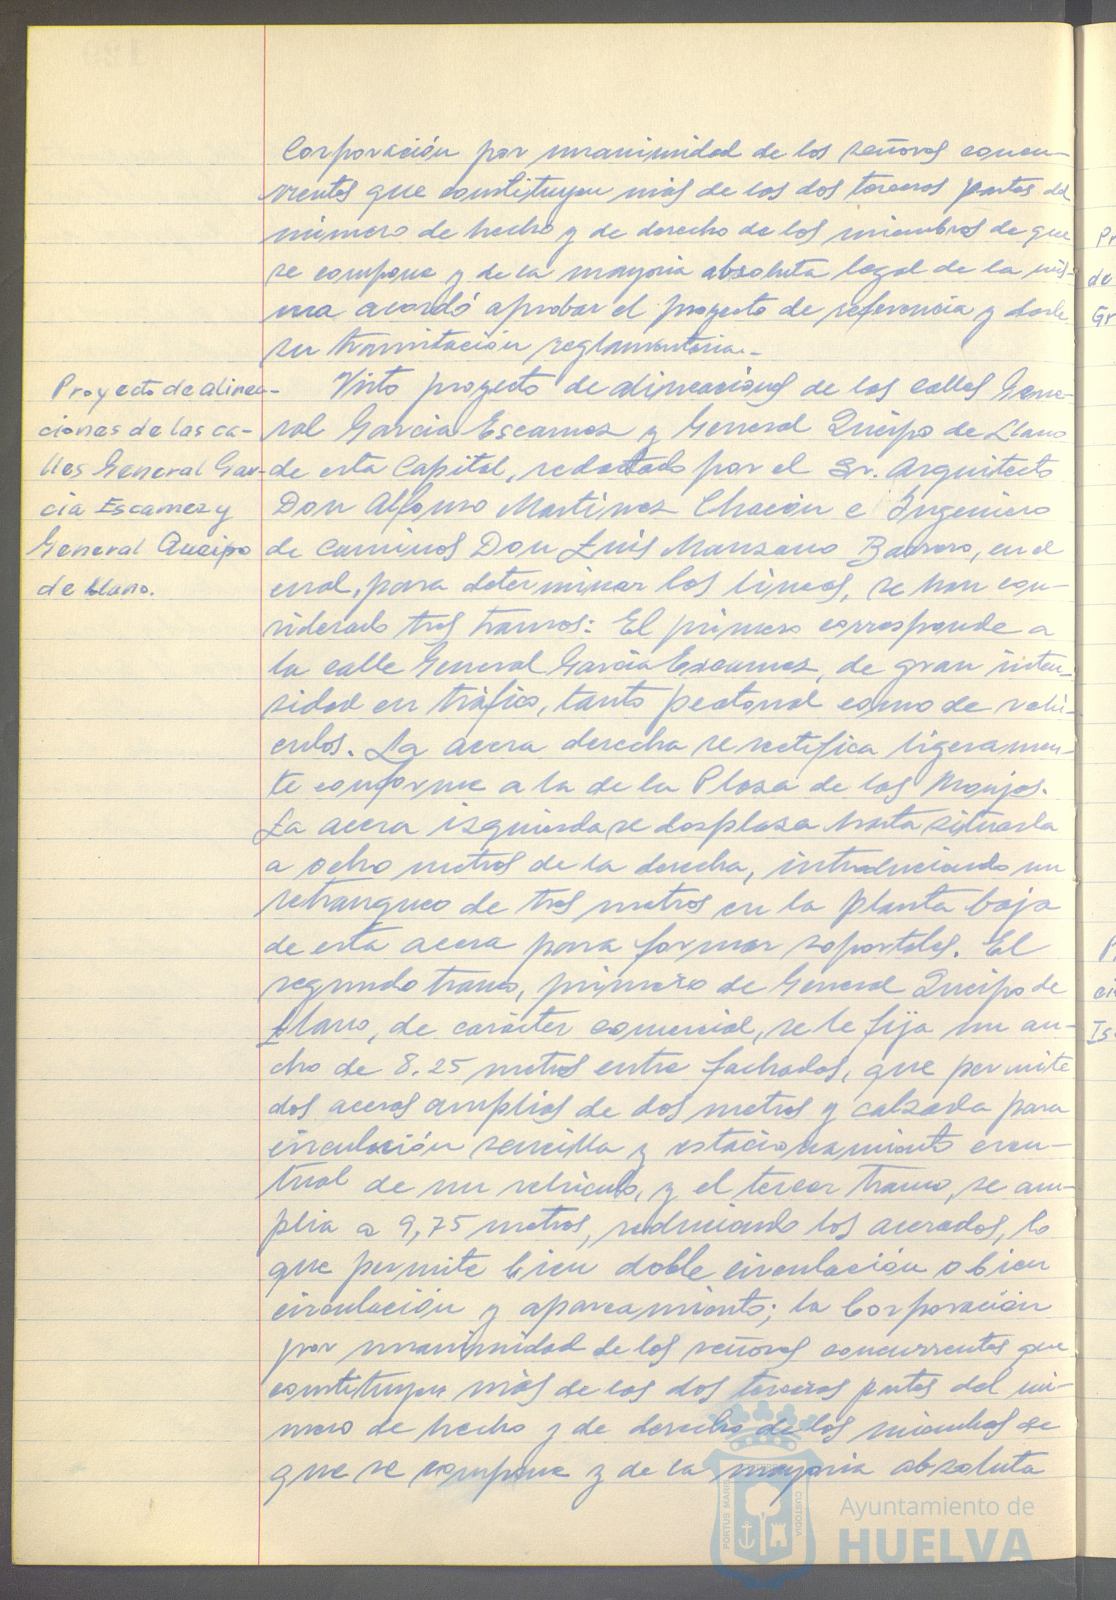 Corporación por unanimidad de los señores concu-
rrentes que constituyen más de las dos terceras partes del
número de hecho y de derecho de los miembros de que
se compone y de la mayoria absoluta legal de la mis-
ma acordó aprobar el proyecto de referencia y darle
su tramitación reglamentaria.-
Proyecto de alinea-
ciones de las ca-
lles General Gar-
cia Escamez y
General Queipo
de Llano.
Visto proyecto de alineaciones de las calles Gene-
ral Garcia Escamez y General Queipo de Llano
de esta Capital, redactado por el Sr. Arquitecto
Don Alfonso Martinez Chacón e Ingeniero
de Caminos Don Luis Manzano Barrero, en el
cual, para determinar las lineas, se han con-
siderado tres tramos: El primero corresponde a
la calle General Garcia Escamez, de gran inten-
sidad en tráfico, tanto peatonal como de vehi-
culos. La acera derecha se rectifica ligeramen-
te conforme a la de la Plaza de las Monjas.
La acera izquierda se desplaza hasta situarla
a ocho metros de la derecha, introduciendo un
retranqueo de tres metros en la planta baja
de esta acera para formar soportales. El
segundo tramo, primero de General Queipo de
Llano, de carácter comercial, se le fija un an-
cho de 8.25 metros entre fachadas, que permite
dos aceras amplias de dos metros y calzada para
circulación sencilla y estacionamiento even-
tual de un vehiculo, y el tercer tramo, se am-
plia a 9,75 metros, reduciendo los acerados, lo
que permite bien doble circulación o bien
circulación y aparcamiento; la Corporación
por unanimidad de los señores concurrentes que
constituyen más de las dos terceras partes del nú-
mero de hecho y de derecho de los miembros de
que se compone y de la mayoria absoluta
PORTUS MARIS
CUSTODIA
Ayuntamiento de
HUELVA